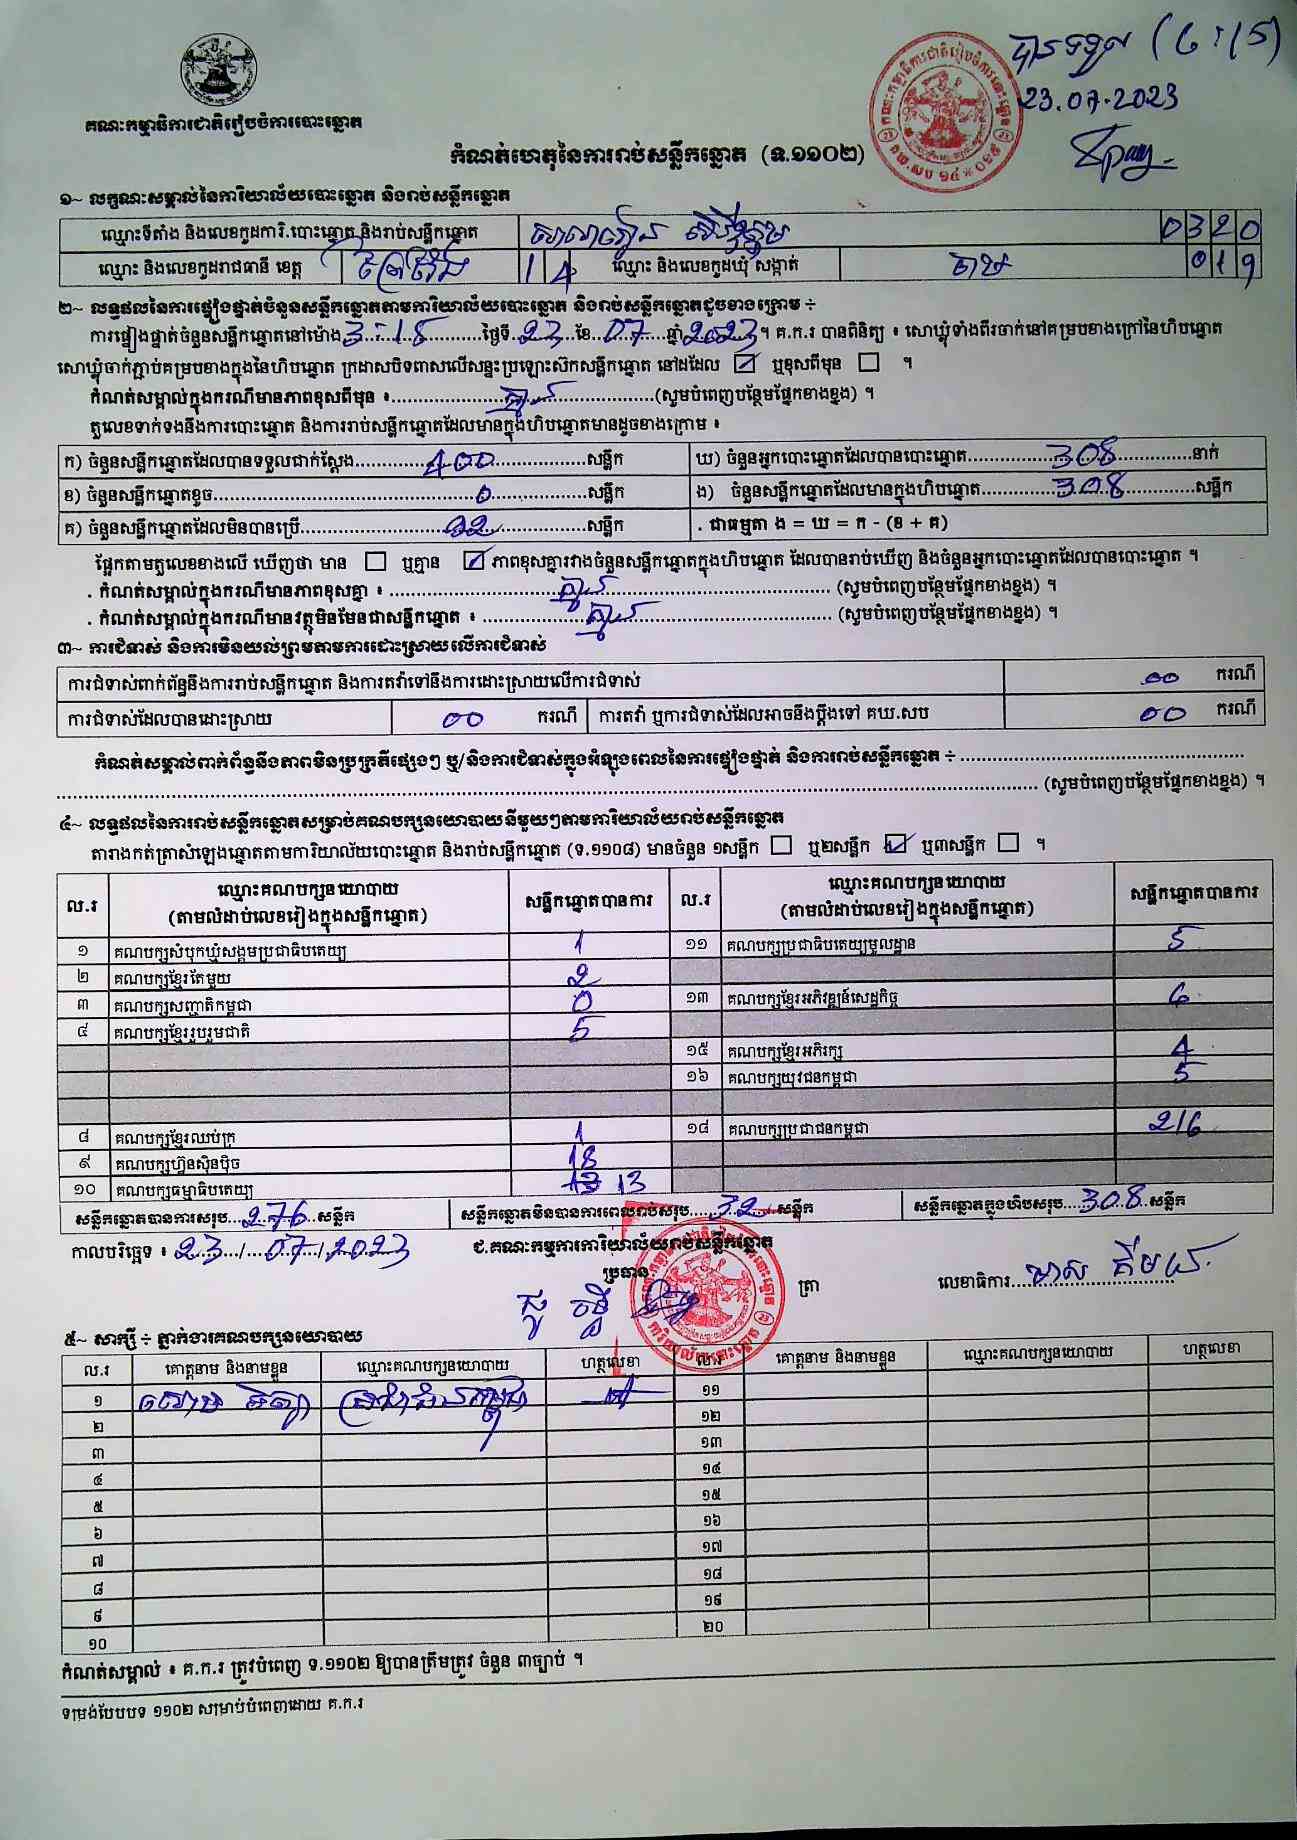 បានទទួល (6:15)
23.07.2023
គណៈកម្មាធិការជាតិរៀបចំការបោះឆ្នោត
កំណត់ហេតុនៃការរាប់សន្លឹកឆ្នោត (ទ.១១០២)
១~ លក្ខណៈសម្គាល់នៃការិយាល័យបោះឆ្នោត និងរាប់សន្លឹកឆ្នោត
ឈ្មោះទីតាំង និងលេខកូដការិ.បោះឆ្នោត និងរាប់សន្លឹកឆ្នោត 0320
ឈ្មោះ និងលេខកូដរាជធានី ខេត្ត ព្រៃវែង 14 ឈ្មោះ និងលេខកូដឃុំ សង្កាត់ 019
២~ លទ្ធផលនៃការផ្ទៀងផ្ទាត់ចំនួនសន្លឹកឆ្នោតតាមការិយាល័យបោះឆ្នោត និងរាប់សន្លឹកឆ្នោតដូចខាងក្រោម ÷
ការផ្ទៀងផ្ទាត់ចំនួនសន្លឹកឆ្នោតនៅម៉ោង 3:18 ថ្ងៃទី 23 ខែ 07 ឆ្នាំ 2023 ។ គ.ក.រ បានពិនិត្យ ៖ សោឃ្លុំទាំងពីរចាក់នៅគម្របខាងក្រៅនៃហិបឆ្នោត
សោឃ្លុំចាក់ភ្ជាប់គម្របខាងក្នុងនៃហិបឆ្នោត ក្រដាសបិទពាសលើសន្ទះប្រឡោះស៊កសន្លឹកឆ្នោត នៅដដែល ☑ ឬខុសពីមុន ☐ ។
កំណត់សម្គាល់ក្នុងករណីមានភាពខុសពីមុន ៖ គ្មាន (សូមបំពេញបន្ថែមផ្នែកខាងខ្នង) ។
តួលេខទាក់ទងនឹងការបោះឆ្នោត និងការរាប់សន្លឹកឆ្នោតដែលមានក្នុងហិបឆ្នោតមានដូចខាងក្រោម ៖
ក) ចំនួនសន្លឹកឆ្នោតដែលបានទទួលជាក់ស្តែង 400 សន្លឹក ឃ) ចំនួនអ្នកបោះឆ្នោតដែលបានបោះឆ្នោត 308 នាក់
ខ) ចំនួនសន្លឹកឆ្នោតខូច 0 សន្លឹក ង) ចំនួនសន្លឹកឆ្នោតដែលមានក្នុងហិបឆ្នោត 308 សន្លឹក
គ) ចំនួនសន្លឹកឆ្នោតដែលមិនបានប្រើ 92 សន្លឹក . ជាធម្មតា ង = ឃ = ក - (ខ + គ)
ផ្អែកតាមតួលេខខាងលើ ឃើញថា មាន ☐ ឬគ្មាន ☑ ភាពខុសគ្នារវាងចំនួនសន្លឹកឆ្នោតក្នុងហិបឆ្នោត ដែលបានរាប់ឃើញ និងចំនួនអ្នកបោះឆ្នោតដែលបានបោះឆ្នោត ។
. កំណត់សម្គាល់ក្នុងករណីមានភាពខុសគ្នា ៖ គ្មាន (សូមបំពេញបន្ថែមផ្នែកខាងខ្នង) ។
. កំណត់សម្គាល់ក្នុងករណីមានវត្ថុមិនមែនជាសន្លឹកឆ្នោត ៖ គ្មាន (សូមបំពេញបន្ថែមផ្នែកខាងខ្នង) ។
៣~ ការជំទាស់ និងការមិនយល់ព្រមតាមការដោះស្រាយលើការជំទាស់
ការជំទាស់ពាក់ព័ន្ធនឹងការរាប់សន្លឹកឆ្នោត និងការតវ៉ាទៅនឹងការដោះស្រាយលើការជំទាស់ 00 ករណី
ការជំទាស់ដែលបានដោះស្រាយ 00 ករណី ការតវ៉ា ឬការជំទាស់ដែលអាចនឹងប្តឹងទៅ គឃ.សប 00 ករណី
កំណត់សម្គាល់ពាក់ព័ន្ធនឹងភាពមិនប្រក្រតីផ្សេងៗ ឬ/និងការជំទាស់ក្នុងអំឡុងពេលនៃការផ្ទៀងផ្ទាត់ និងការរាប់សន្លឹកឆ្នោត ÷
(សូមបំពេញបន្ថែមផ្នែកខាងខ្នង) ។
៤~ លទ្ធផលនៃការរាប់សន្លឹកឆ្នោតសម្រាប់គណបក្សនយោបាយនីមួយៗតាមការិយាល័យរាប់សន្លឹកឆ្នោត
តារាងកត់ត្រាសំឡេងឆ្នោតតាមការិយាល័យបោះឆ្នោត និងរាប់សន្លឹកឆ្នោត (ទ.១១០៨) មានចំនួន ១សន្លឹក ☐ ឬ២សន្លឹក ☑ ឬ៣សន្លឹក ☐ ។
ល.រ ឈ្មោះគណបក្សនយោបាយ (តាមលំដាប់លេខរៀងក្នុងសន្លឹកឆ្នោត) សន្លឹកឆ្នោតបានការ ល.រ ឈ្មោះគណបក្សនយោបាយ (តាមលំដាប់លេខរៀងក្នុងសន្លឹកឆ្នោត) សន្លឹកឆ្នោតបានការ
១ គណបក្សសំបុកឃ្មុំសង្គមប្រជាធិបតេយ្យ 1 ១១ គណបក្សប្រជាធិបតេយ្យមូលដ្ឋាន 5
២ គណបក្សខ្មែរតែមួយ 2
៣ គណបក្សសញ្ជាតិកម្ពុជា 0 ១៣ គណបក្សខ្មែរអភិវឌ្ឍន៍សេដ្ឋកិច្ច 6
៤ គណបក្សខ្មែររួបរួមជាតិ 5
១៥ គណបក្សខ្មែរអភិរក្ស 4
១៦ គណបក្សយុវជនកម្ពុជា 5
៨ គណបក្សខ្មែរឈប់ក្រ 1 ១៨ គណបក្សប្រជាជនកម្ពុជា 216
៩ គណបក្សហ៊្វុនស៊ិនប៉ិច 18
១០ គណបក្សធម្មាធិបតេយ្យ 13
សន្លឹកឆ្នោតបានការសរុប 276 សន្លឹក សន្លឹកឆ្នោតមិនបានការពេលរាប់សរុប 32 សន្លឹក សន្លឹកឆ្នោតក្នុងហិបសរុប 308 សន្លឹក
កាលបរិច្ឆេទ ៖ 23/07/2023 ជ.គណៈកម្មការការិយាល័យរាប់សន្លឹកឆ្នោត
ប្រធាន ត្រា លេខាធិការ
៥~ សាក្សី ÷ ភ្នាក់ងារគណបក្សនយោបាយ
ល.រ គោត្តនាម និងនាមខ្លួន ឈ្មោះគណបក្សនយោបាយ ហត្ថលេខា ល.រ គោត្តនាម និងនាមខ្លួន ឈ្មោះគណបក្សនយោបាយ ហត្ថលេខា
១ ប្រជាជនកម្ពុជា ១១
២ ១២
៣ ១៣
៤ ១៤
៥ ១៥
៦ ១៦
៧ ១៧
៨ ១៨
៩ ១៩
១០ ២០
កំណត់សម្គាល់ ៖ គ.ក.រ ត្រូវបំពេញ ទ.១១០២ ឱ្យបានត្រឹមត្រូវ ចំនួន ៣ច្បាប់ ។
ទម្រង់បែបបទ ១១០២ សម្រាប់បំពេញដោយ គ.ក.រ